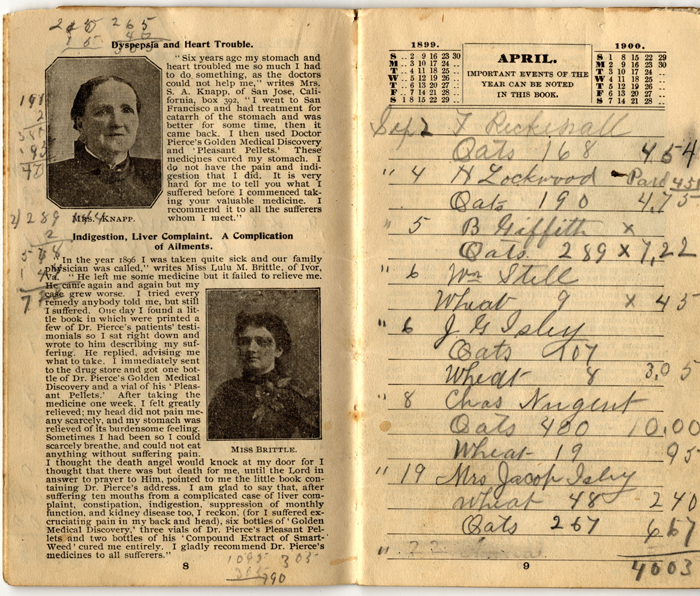 265
Dyspepsia and Heart Trouble.
"Six years ago my stomach and
heart troubled me so much I had
to do something, as the doctors
could not help me," writes Mrs.
S. A. Knapp, of San Jose, Cali-
fornia, box 392. "I went to San
Francisco and had treatment for
catarrh of the stomach and was
better for some time, then it
came back. I then used Doctor
Pierce's Golden Medical Discovery
and 'Pleasant Pellets.' These
medicines cured my stomach. I
do not have the pain and indi-
gestion that I did. It is very
hard for me to tell you what I
suffered before I commenced tak-
ing your valuable medicine. I
recommend it to all the sufferers
whom I meet."
MRS. KNAPP.
289
2
Indigestion, Liver Complaint. A Complication
of Ailments.
"In the year 1896 I was taken quite sick and our family
physician was called," writes Miss Lulu M. Brittle, of Ivor,
Va. "He left me some medicine but it failed to relieve me.
He came again and again but my
case grew worse. I tried every
remedy anybody told me, but still
I suffered. One day I found a lit-
tle book in which were printed a
few of Dr. Pierce's patients' testi-
monials so I sat right down and
wrote to him describing my suf-
fering. He replied, advising me
what to take. I immediately sent
to the drug store and got one bot-
tle of Dr. Pierce's Golden Medical
Discovery and a vial of his 'Pleas-
ant Pellets.' After taking the
medicine one week, I felt greatly
relieved; my head did not pain me
any scarcely, and my stomach was
relieved of its burdensome feeling.
Sometimes I had been so I could
scarcely breathe, and could not eat
anything without suffering pain.
MISS BRITTLE.
I thought the death angel would knock at my door for I
thought that there was but death for me, until the Lord in
answer to prayer to Him, pointed to me the little book con-
taining Dr. Pierce's address. I am glad to say that, after
suffering ten months from a complicated case of liver com-
plaint, constipation, indigestion, suppression of monthly
function, and kidney disease too, I reckon, (for I suffered ex-
cruciating pain in my back and head), six bottles of 'Golden
Medical Discovery,' three vials of Dr. Pierce's Pleasant Pel-
lets and two bottles of his 'Compound Extract of Smart-
Weed' cured me entirely. I gladly recommend Dr. Pierce's
medicines to all sufferers."
8
305
1899.
S .. 2 9 16 23 30
M .. 3 10 17 24 ..
T .. 4 11 18 25 ..
W .. 5 12 19 26 ..
T .. 6 13 20 27 ..
F .. 7 14 21 28 ..
S 1 8 15 22 29 ..
APRIL.
IMPORTANT EVENTS OF THE
YEAR CAN BE NOTED
IN THIS BOOK.
1900.
S 1 8 15 22 29
M 2 9 16 23 30
T 3 10 17 24 ..
W 4 11 18 25 ..
T 5 12 19 26 ..
F 6 13 20 27 ..
S 7 14 21 28 ..
Sep 2
Oats 168 454
" 4 H Lockwood Paid 451
Oats 190 4,75
" 5 B Griffith x
Oats 289 x 7,22
" 6 Wm Still
Wheat 9 x 45
" 6 J G Isley
Oats 107
Wheat 8 3.05
" 8 Chas Nugent
Oats 400 10,00
Wheat 19 95
" 19 Mrs Jacop Isley
Wheat 48 240
Oats 267 667
" 22
4003
9